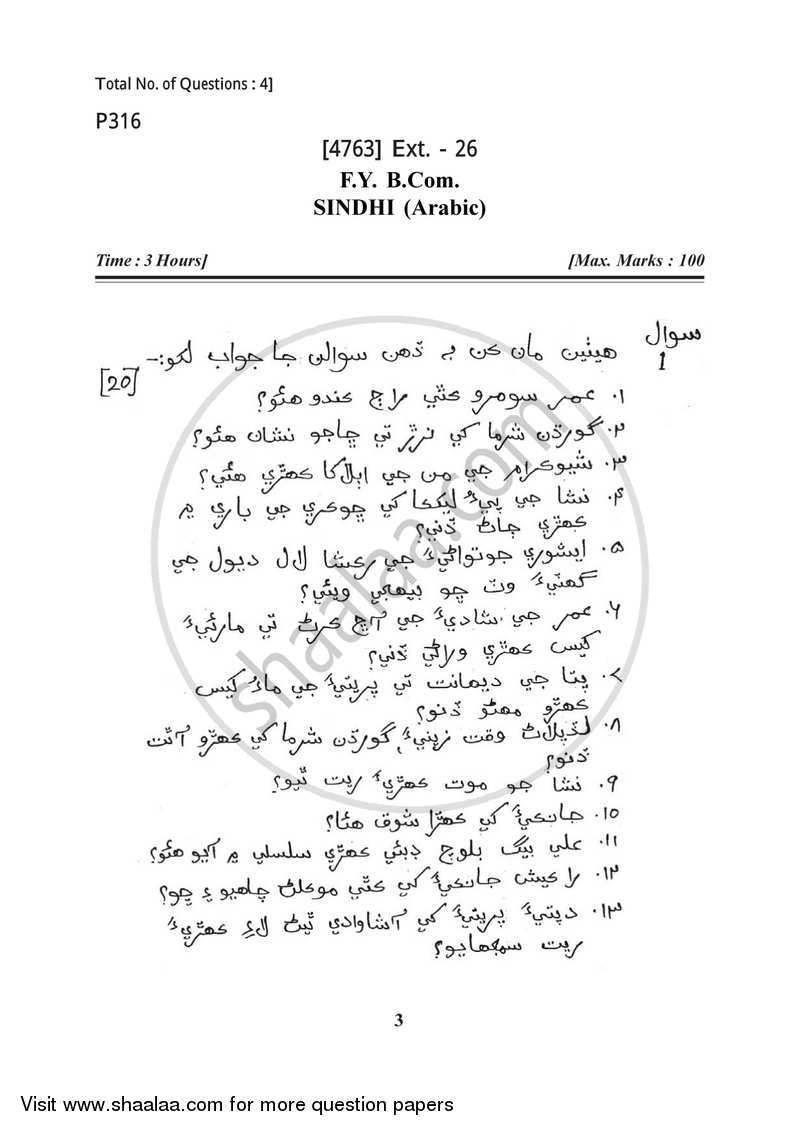 Total No. of Questions : 4]
P316
[4763] Ext. - 26
F.Y. B.Com.
SINDHI (Arabic)
Time : 3 Hours] [Max. Marks : 100
سوال 1 هيٺين مان ڪن بہ ڏهن سوالن جا جواب لکو:-
[20]
١. عمر سومرو ڪٿي راڄ ڪندو هئو؟
٢. گورڌن شرما کي نرڙ تي ڇاجو نشان هئو؟
٣. شيوڪرام جي من جي اڀلاکا ڪهڙي هئي؟
۴. نشا جي پيءُ ليکڪا کي ڇوڪري جي باري ۾
ڪهڙي ڄاڻ ڏني؟
۵. ايشوري جوتواڻيءَ جي رڪشا لال ديول جي
گهٽيءَ وٽ ڇو بيهجي ويئي؟
۶. عمر جي شاديءَ جي آڇ ڪرڻ تي مارئيءَ
کيس ڪهڙي وراڻي ڏني؟
٧. پتا جي ديهانت تي پريتيءَ جي ماءُ کيس
ڪهڙو مهڻو ڏنو؟
٨. لڏپلاڻ وقت زينيءَ گورڌن شرما کي ڪهڙو آٿت
ڏنو؟
٩. نشا جو موت ڪهڙيءَ ريت ٿيو؟
١٥. جانڪيءَ کي ڪهڙا شوق هئا؟
١١. علي بيگ بلوچ دبئي ڪهڙي سلسلي ۾ آيو هئو؟
١٢. راڪيش جانڪيءَ کي ڪٿي موڪلڻ چاهيو ۽ ڇو؟
١٣. دپتيءَ پريتيءَ کي آشاوادي ٿيڻ لاءِ ڪهڙيءَ
ريت سمجهايو؟
3
shaalaa.com
Visit www.shaalaa.com for more question papers